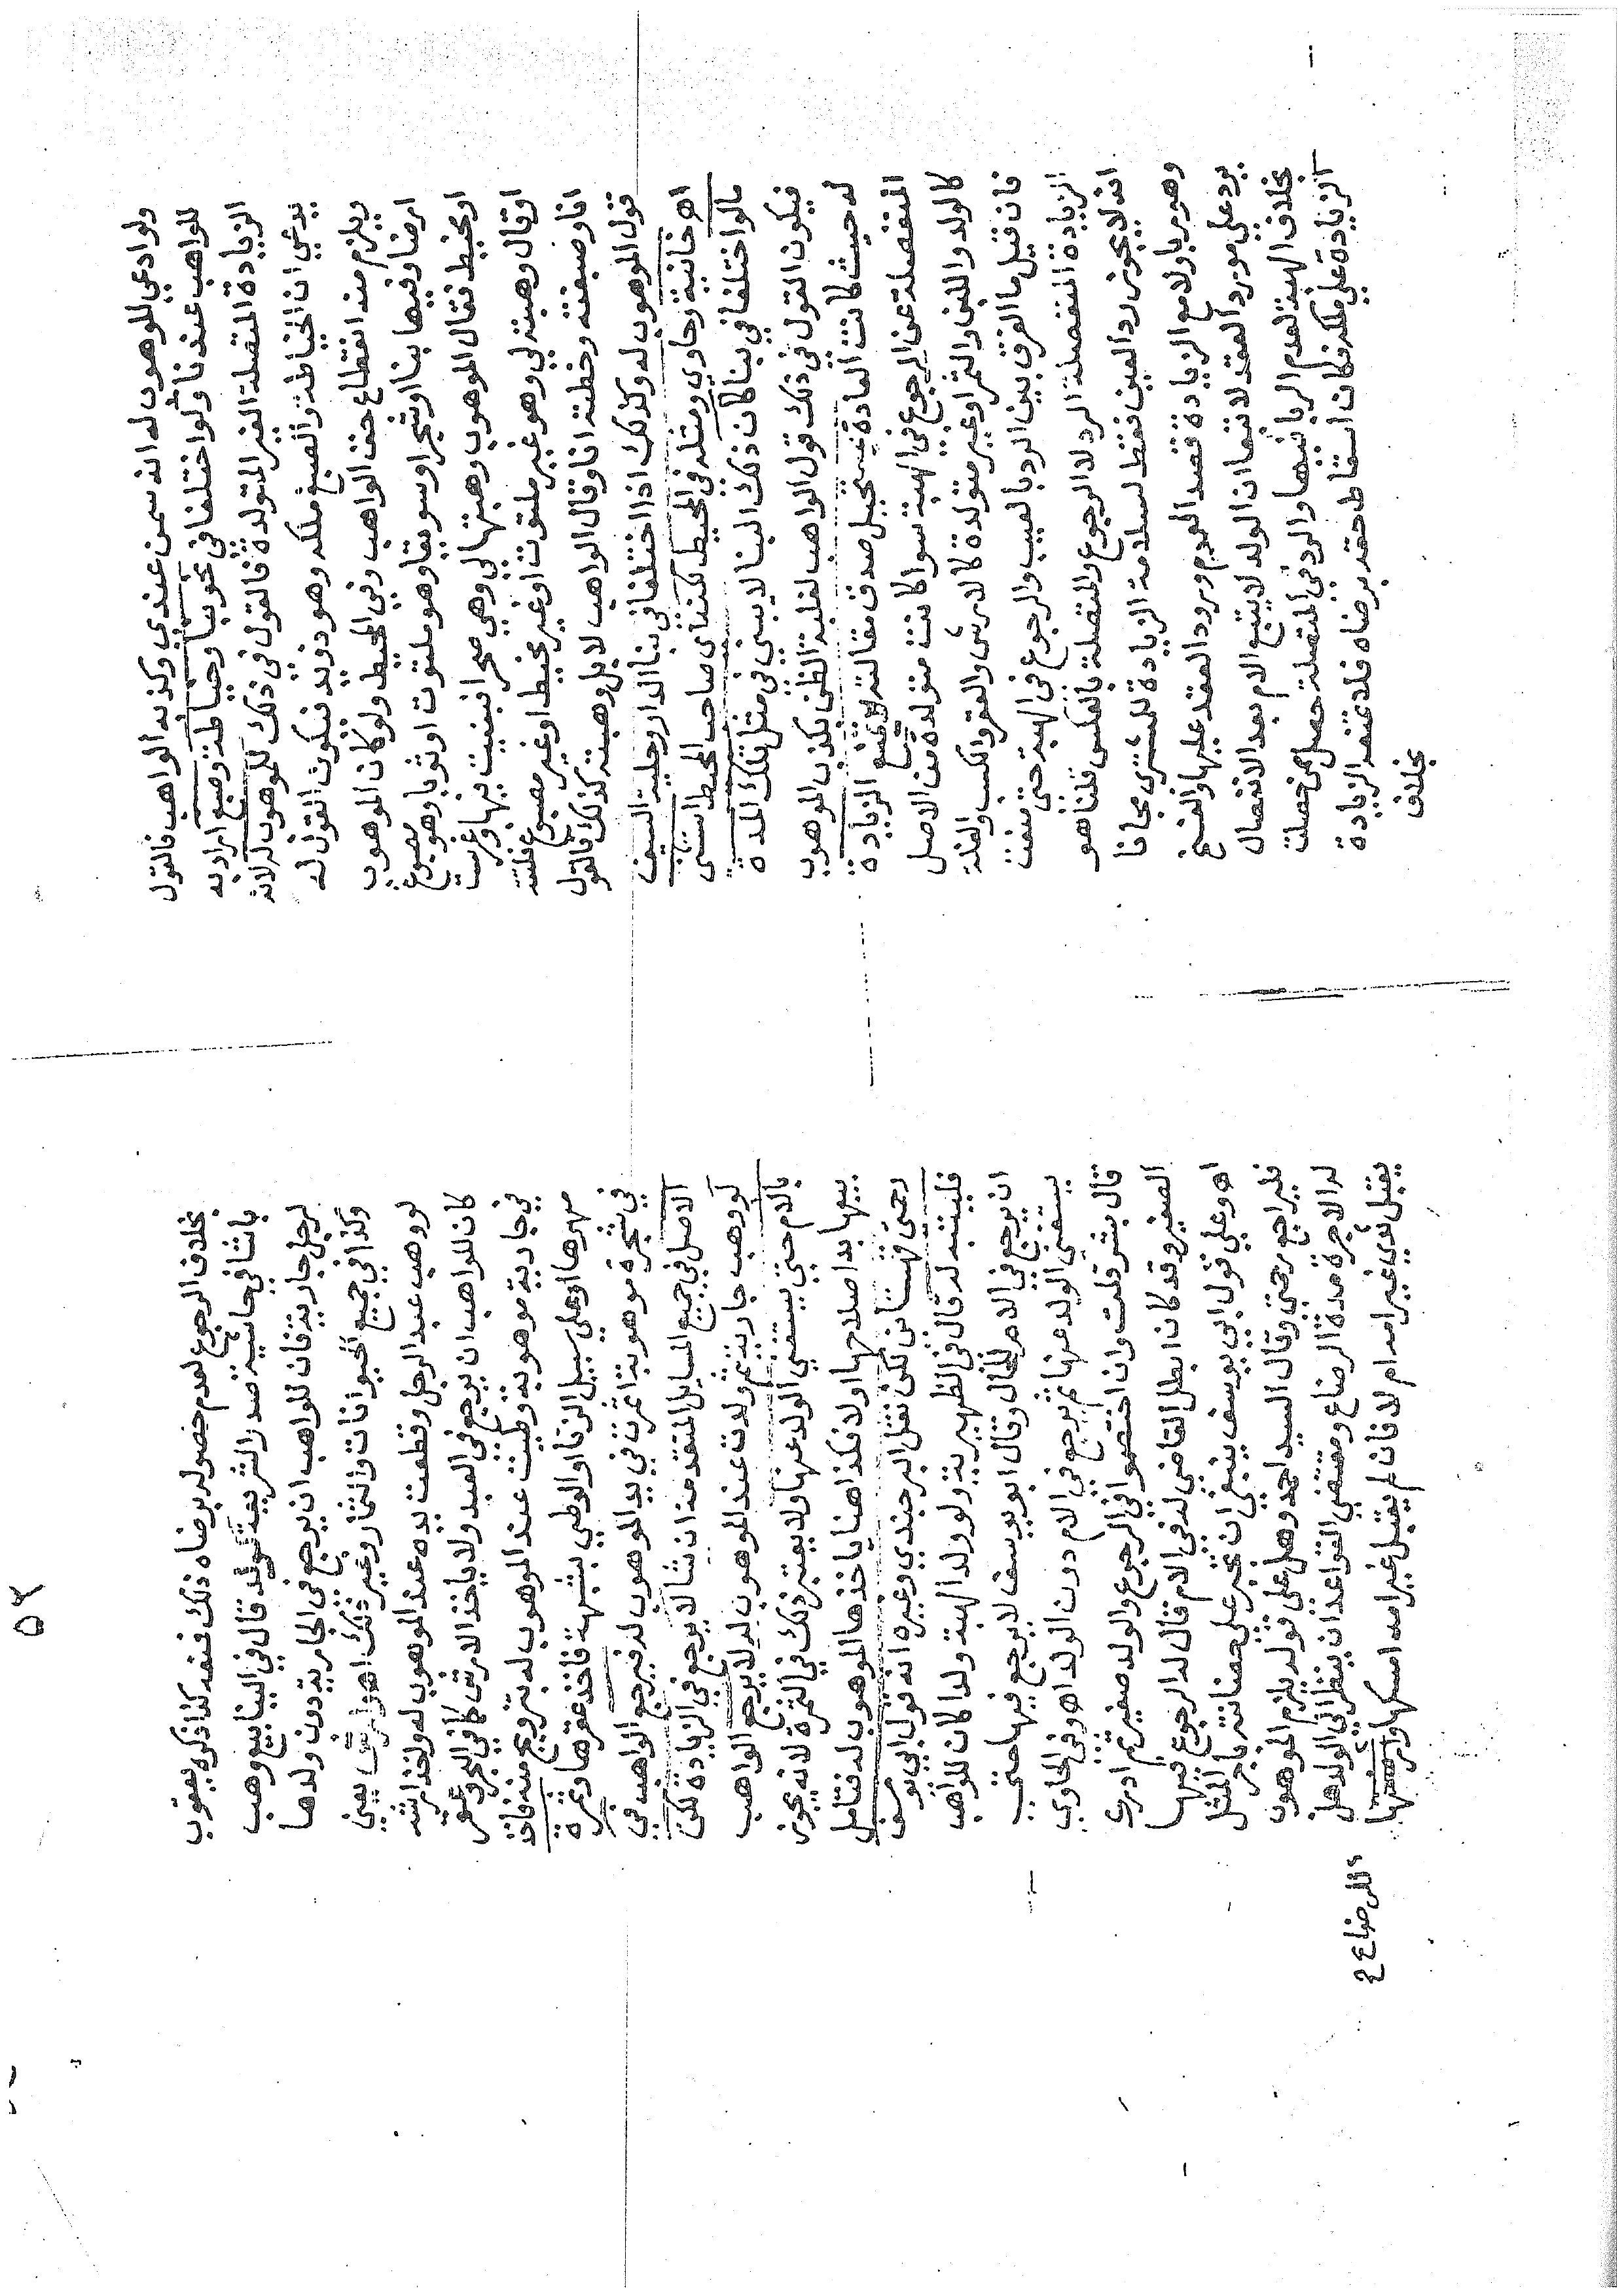 ولو ادعي الموهوب له انه سمن عندي وكذبه الواهب فالقول
للواهب عندنا ولو اختلفا في نحو بنا وخياطة وصبع اراد به
الزيادة المتصلة الغير المتولدة فالقول في ذلك للموهوب له لانه
يدعي ان الخياطة والصبغ ملكه وهو ذو يد فيكون القول له
ويلزم منه انقطاع حق الواهب وفي المحيط ولو كان الموهوب
ارضا وفيها بنا او شجر او سويقا وهو ملتوت او ثوبا وهو مصبوغ
او مخيط فقال الموهوب وهبتها لي وهي صحرا فبنيت فيها وغرست
او قال وهبته لي وهو غير ملتوت او غير مخيط او غير مصبوغ فلتته
انا وصبغته وخطته انا وقال الواهب لا بل وهبته كذلك فالقول
قول الموهوب له وكذلك اذا اختلفا في بنا الدار وحلية السيف
اهر خانية وحاوي ومثله في المحيط لكنه اي صاحب المحيط استثنى
مالو اختلفا في بنا كان ذلك البنا لا يبني في مثل تلك المدة
فيكون القول في ذلك قول الواهب لغلبة الظن بكذب الموهوب
له حيث كانت العادة تحيل صدق مقالته ولا تمنع الزيادة
المنفصلة عن الرجوع في الهبة سوا كانت متولدة من الاصل
كالولد واللبن والثمر او غير متولدة كالارش والعقر والكسب والغلة
فان قيل ما الفرق بين الرد بالعيب والرجوع في الهبة حتى منعت
الزيادة المنفصلة الرد لا الرجوع والمتصلة بالعكس قلنا هو
انه لا يجوز رد العين فقط لسلامة الزيادة للمشتري مجانا
وهو ربا ولا مع الزيادة قصدا لعدم ورود العقد عليها والفسخ
يرد علي مورد العقد لا تبعا ان الولد لا يتبع الام بعد الانفصال
بخلاف الهبة لعدم الربا فيها والرد في المتصلة حصل ممن حصلت
الزيادة علي ملكه فكان اسقاط حقه برضاه فلا تمنعه الزيادة
بخلاف
٥٢
بخلاف الرجوع لعدم حصوله برضاه ذلك فنعه كذا ذكره يعقوب
باشا في حاشية صدر الشريعة قال في الينابيع وهب
لرجل جارية فان للواهب ان يرجع في الجارية دون ولدها
وكذا في جميع الحيوانات والثمار وغير ذلك اهـ يعني
لو وهب عبدا لرجل وقطعت يده عند الموهوب له واخذ ارشه
كان للواهب ان يرجع في العبد ولا ياخذ الارش كما في البحر
في جارية موهوبة وطيت عند الموهوب له بتزويج منه فاخذ
مهرها او علي سبيل الزنا او الوطي بشبهة فاخذ عقرها وثمرة
في شجرة موهوبة اثمرت في يد الموهوب له فيرجع الواهب في
الاصل في جميع المسايل المتقدمة ان شا لا يرجع في الزيادة لكن
لو وهب جارية ثم ولدت عند الموهوب له لا يرجع الواهب
بالام حتي يستغني الولد عنها ولا يعتبر ذلك في الثمرة لانه يجوز
بيعها بدا صلاحها اولا فكذا هنا ياخذها الموهوب له فتامل
رحمتي قهستاني لكن نقل البرجندي وغيره انه قول ابي يوسف
فليتنبه له قال في الظهيرية ولو ولد الهبة ولدا كان للواهب
ان يرجع في الام للحال وقال ابو يوسف لا يرجع فيها حتي
يستغني الولد عنها ثم يرجع في الام دون الولد اهـ وفي الحاوي
قال بشر قلت وان اختصموا في الرجوع والولد صغير ثم ادرك
الصغير وقد كان ابطل القاضي له في الام قال له الرجوع فيها
اهـ وعلي قول ابي يوسف ينبغي ان تجبر علي حضانته باجر المثل
فليراجع رحمتي وقال السيد احمد وهل علي قوله يلزم الموهوب
له الاجرة مدة الرضاع ومقتضي القواعد ان ينظر الي الولد هل
يقبل ثدي غير امه ام لا فان لم يقبل غير امه امسكها وارضعها
للرضاع